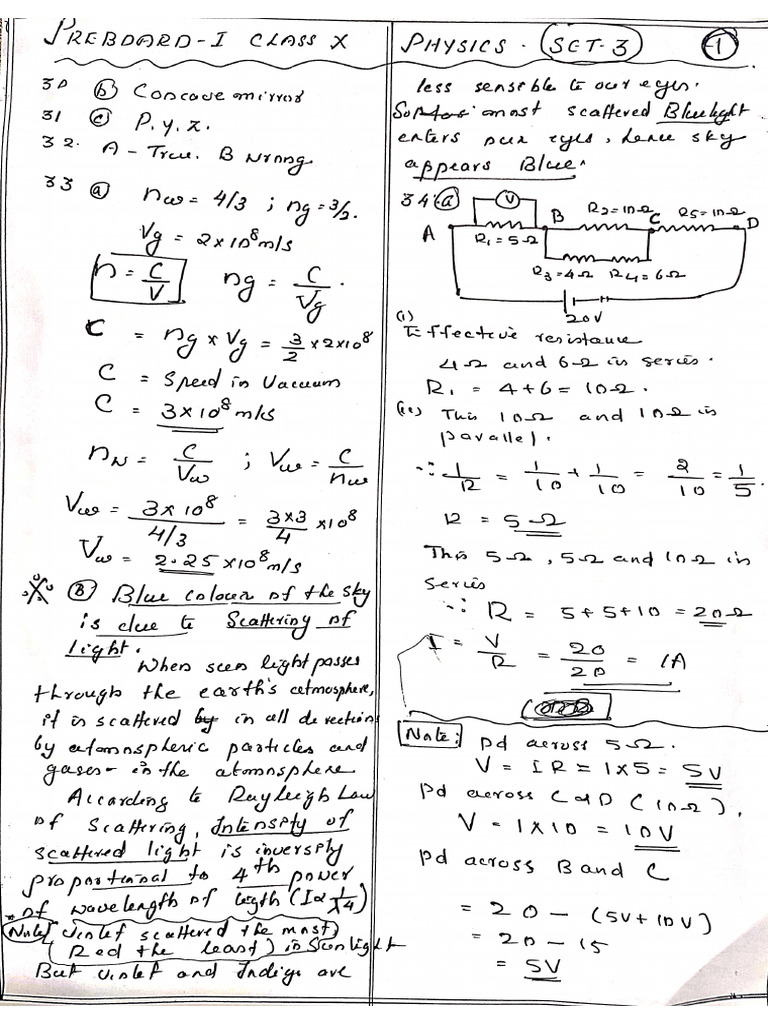 PREBOARD-I CLASS X
PHYSICS. SET-3 1
30 (b) Concave mirror
31 (c) P.y.z.
32. A - True. B Wrong
33 (a) nw = 4/3 ; ng = 3/2.
Vg = 2 x 10^8 m/s
n = C/V ng = C/Vg.
C = ng x Vg = 3/2 x 2x10^8
C = Speed in Vacuum
C = 3x10^8 m/s
nw = C/Vw ; Vw = C/nw
Vw = 3x10^8 / 4/3 = 3x3/4 x10^8
Vw = 2.25 x10^8 m/s
(B) Blue colour of the sky
is due to Scattering of
light.
When sun light passes
through the earth's atmosphere,
it is scattered by in all directions
by atomospheric particles and
gases - in the atomosphere
According to Rayleigh Law
of Scattering, Intensity of
scattered light is inversely
proportional to 4th power
of wavelength of ligth (I α 1/λ4)
Note Violet scattered the most
(Red the least) in Sunlight
But violet and Indigo are
less sensible to our eyes.
most scattered Blue light
enters our eyes, hence sky
appears Blue.
34 (a) V
A B R2=10Ω C R5=10Ω D
R1 = 5Ω
R3=4Ω R4=6Ω
20V
(i)
Effective resistance
4Ω and 6Ω in series.
R1 = 4+6 = 10Ω.
(ii) This 10Ω and 10Ω in
parallel.
∴ 1/R = 1/10 + 1/10 = 2/10 = 1/5
R = 5Ω
This 5Ω, 5Ω and 10Ω in
series
∴ R = 5+5+10 = 20Ω
I = V/R = 20/20 = 1A
Note: Pd across 5Ω.
V = IR = 1x5 = 5V
Pd across C & D (10Ω).
V = 1x10 = 10V
Pd across B and C
= 20 - (5V+10V)
= 20 - 15
= 5V